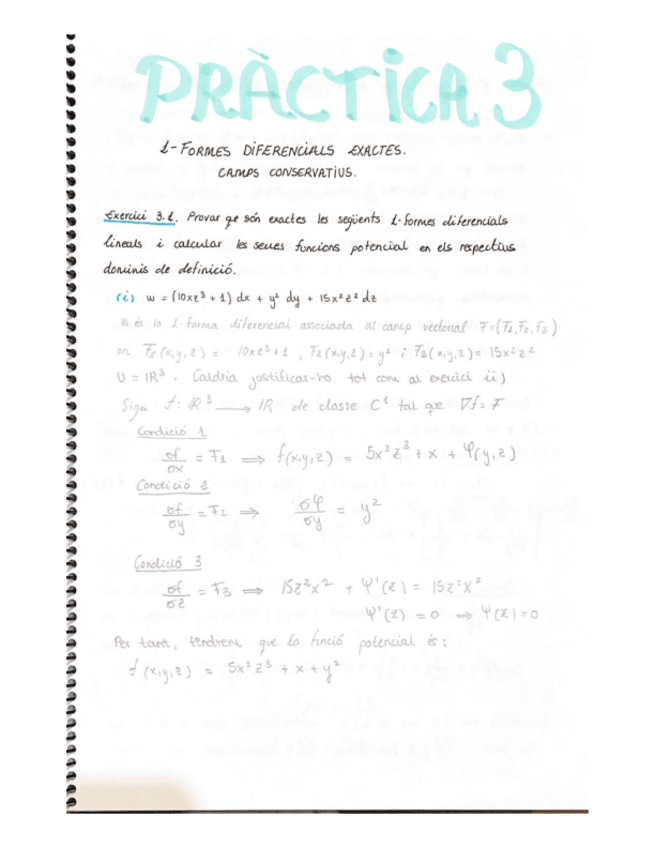 PRÀCTICA 3
1-FORMES DIFERENCIALS EXACTES.
CAMPS CONSERVATIUS.
Exercici 3.1. Provar qe són exactes les següents 1-formes diferencials
lineals i calcular les seues funcions potencial en els respectius
dominis de definició.
(i) w = (10xz³ + 1) dx + y² dy + 15x²z² dz
w és la 1-forma diferencial associada al camp vectorial F=(F₁,F₂,F₃)
on F₁(x,y,z) = 10xz³+1 , F₂(x,y,z)=y² i F₃(x,y,z)= 15x²z²
U = IR³. Caldria justificar-ho tot com al exercici ii)
Siga f: IR³ ⟶ IR de classe C¹ tal que ∇f = F
Condició 1
σf/σx = F₁ ⟹ f(x,y,z) = 5x²z³ + x + φ(y,z)
Condició 2
σf/σy = F₂ ⟹ σφ/σy = y²
Condició 3
σf/σz = F₃ ⟹ 15z²x² + Ψ'(z) = 15z²x²
Ψ'(z) = 0 ⟹ Ψ(z)=0
Per tant, tindrem que la funció potencial és:
f(x,y,z) = 5x²z³ + x + y²